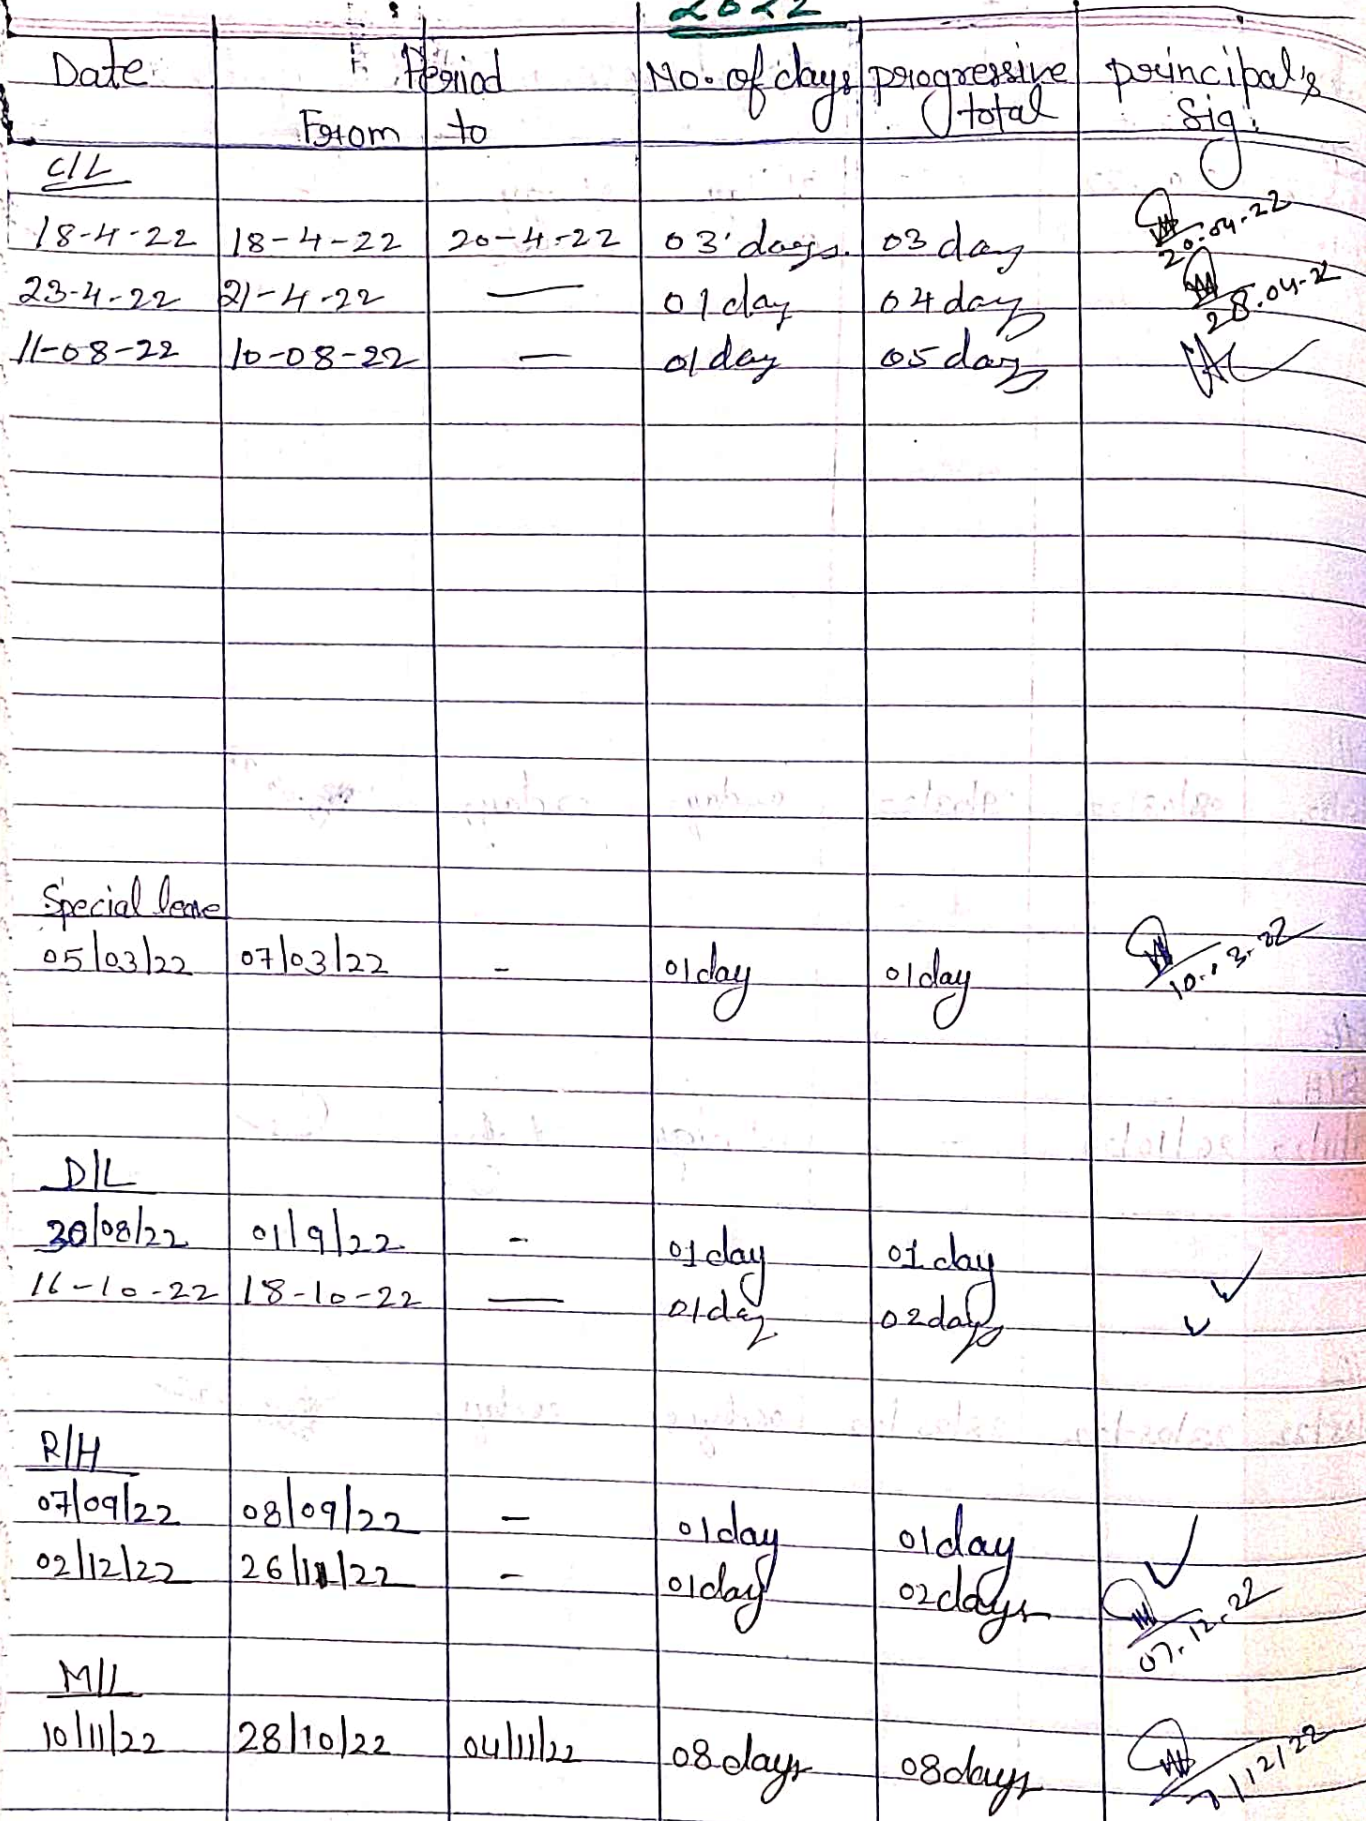 2022
Date Period No. of days progressive total principal's Sig:
From to
C/L
18-4-22 18-4-22 20-4-22 03 days. 03 day 20.04.22
23-4-22 21-4-22 — 01 day 04 day 28.04-22
11-08-22 10-08-22 — 01 day 05 day
Special leave
05/03/22 07/03/22 - 01 day 01 day
D/L
30/08/22 01/9/22 - 01 day 01 day
16-10-22 18-10-22 — 01 day 02 days
R/H
07/09/22 08/09/22 - 01 day 01 day
02/12/22 26/11/22 - 01 day 02 days 07.12.22
M/L
10/11/22 28/10/22 04/11/22 08 days 08 days